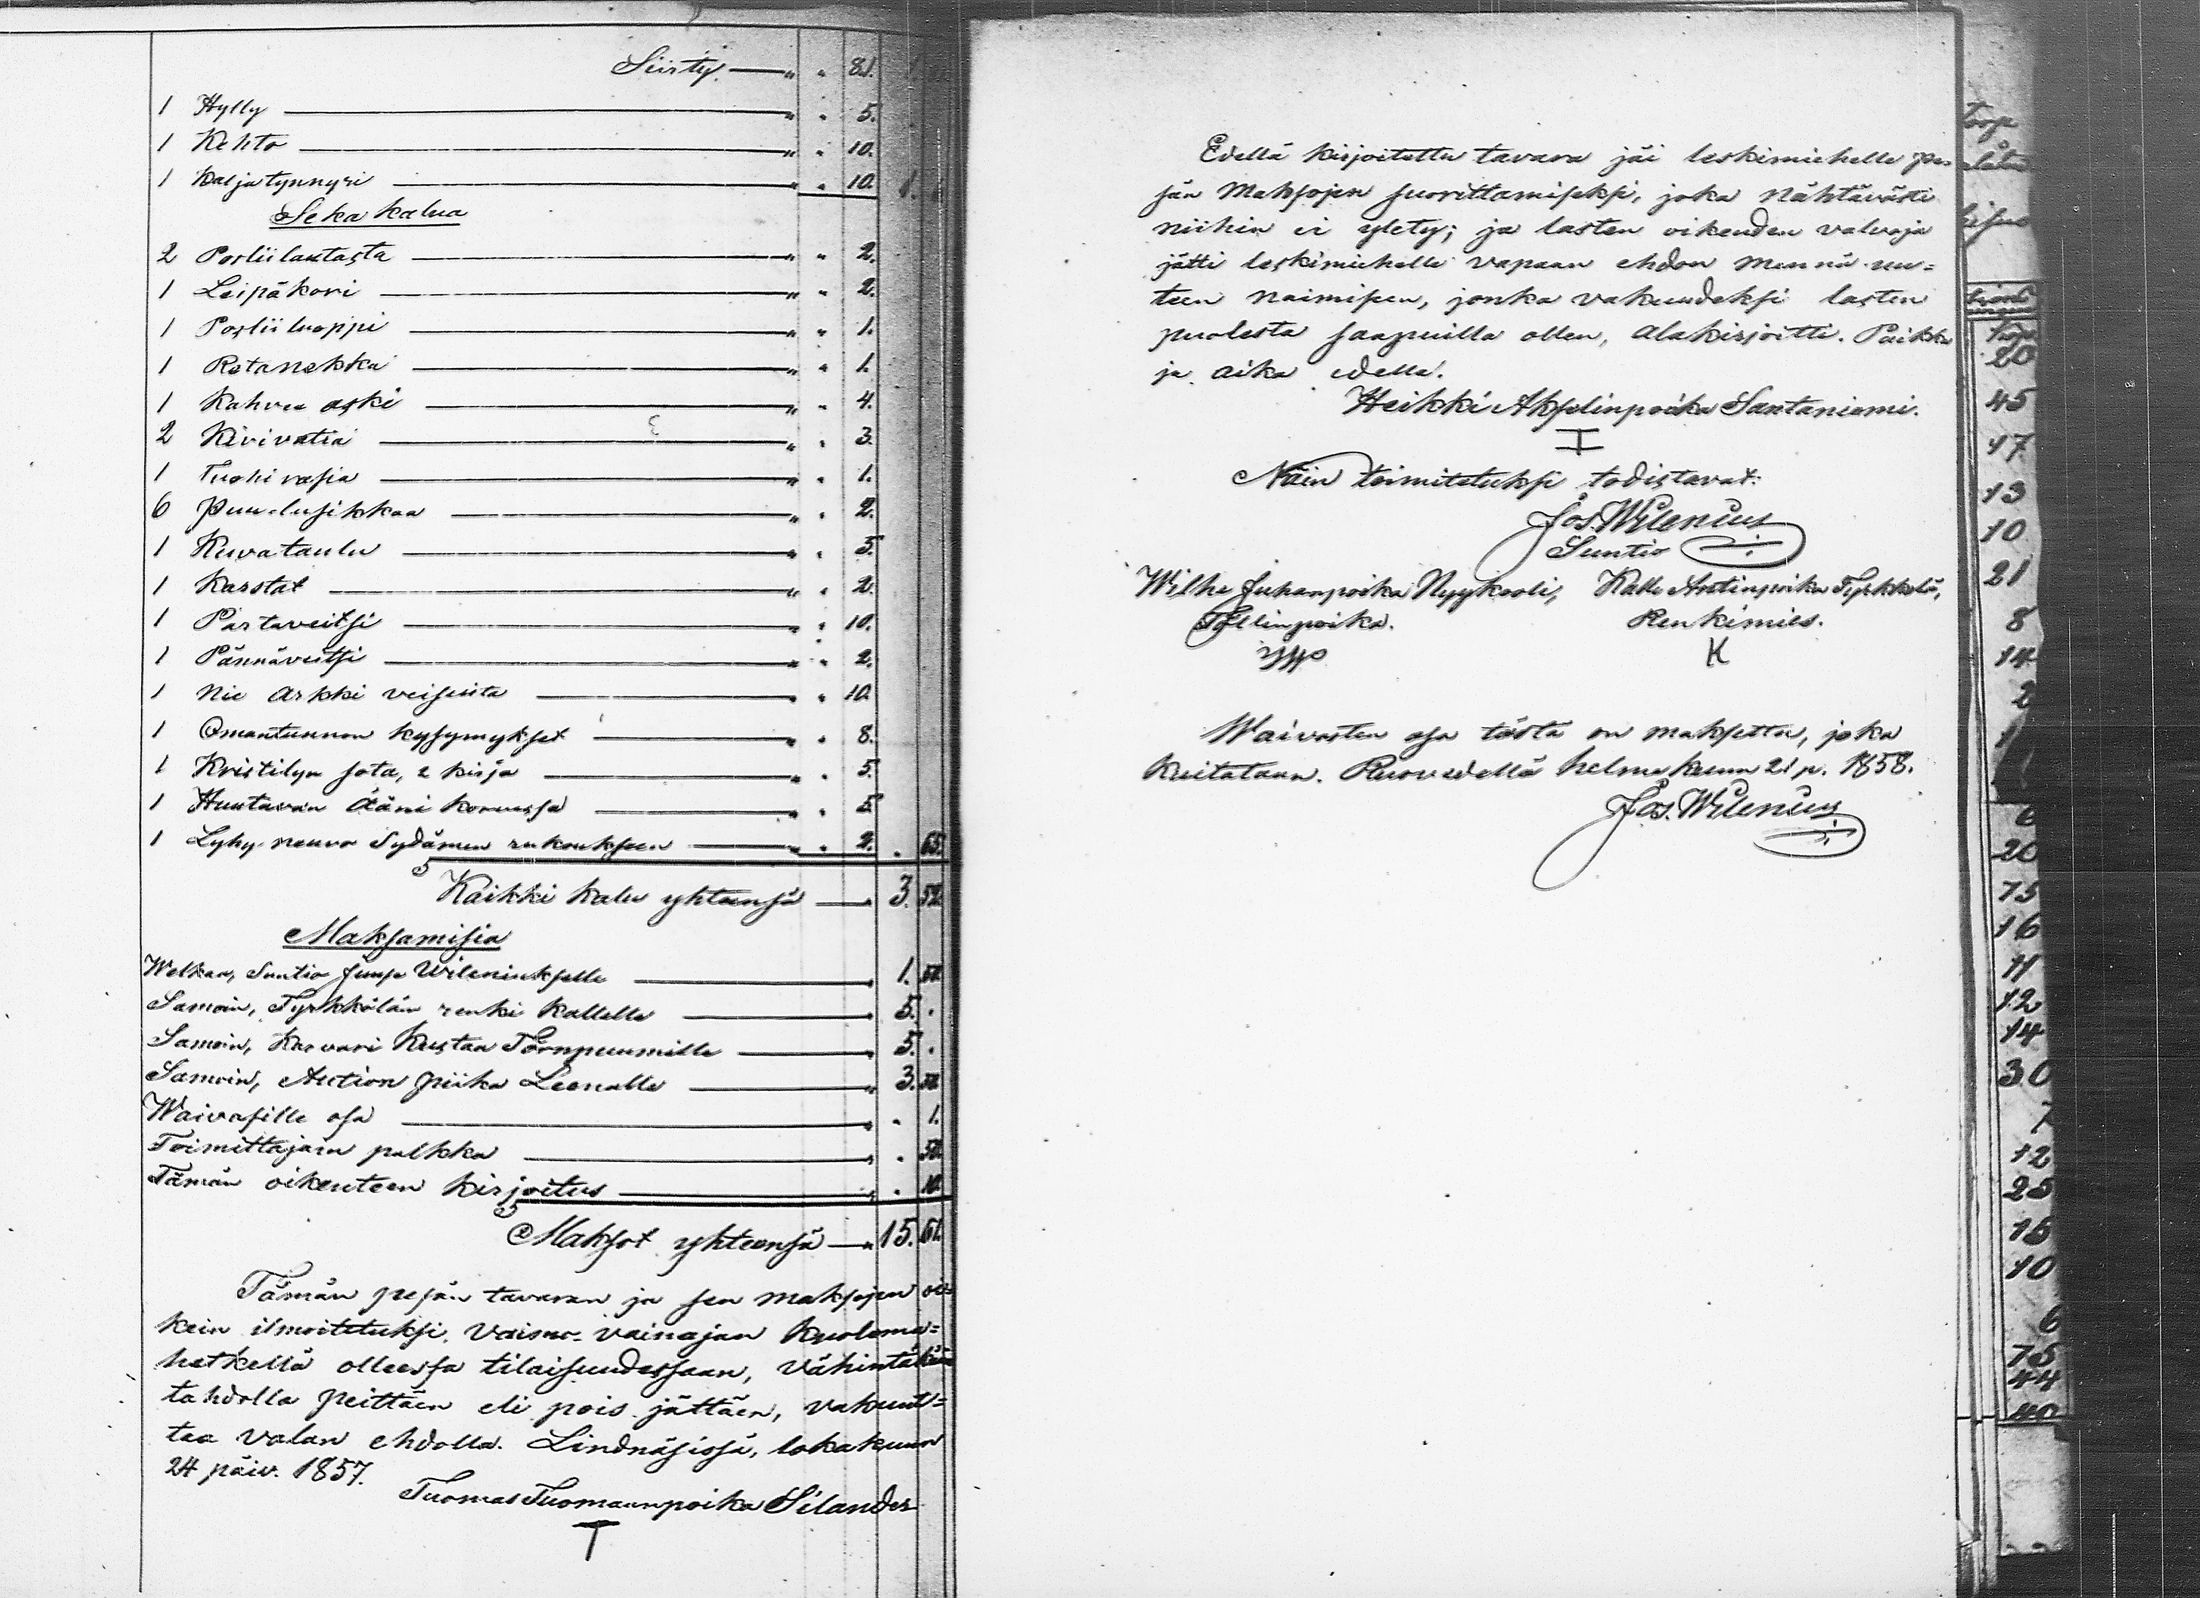 Siirty. — " " 81.
1 Hylly — " " 5.
1 Kehto — " " 10.
1 Kaljatynnyri — " " 10. 1.
Seka kalua
2 Posliilautasta — " " 2.
1 Leipäkori — " " 2.
1 Posliiluoppi — " " 1.
1 Rotanokka — " " 1.
1 Kahvee aski — " " 4.
2 Kivivatia — " " 3.
1 Tuohivasia — " " 1.
6 Puu-lusikkaa — " " 2.
1 Kuvataulu — " " 5.
1 Karstat — " " 2.
1 Partaveitsi — " " 10.
1 Pännäveitsi — " " 2.
1 Nie Arkki veisuita — " " 10.
1 Omantunnon kysymykset — " " 8.
1 Kristilyn sota, 2 kirja — " " 5.
1 Huutavan Ääni korvessa — " " 5.
1 Lyhy neuvo Sydämen rukoukseen — " " 2. " 65.
Kaikki kalu yhteensä — " 3. 52.
Maksamisia
Welkaa, Suntio Juuse Wileniukselle — " 1. 50.
Samoin, Tyrkkölän renki Kallelle — " 5. "
Samoin, Karvari Kustaa Törnpuumille — " 5. "
Samoin, Aution piika Leenalle — " 3. 50.
Waivasille osa — " " 1.
Toimittajain palkka — " " 50.
Tämän oikeuteen kirjoitus — " " 10.
Maksot yhteensä — " 15. 61.
Tämän pesän tavaran ja sen maksojen oi=
kein ilmoitetuksi, vaimo-vainajan kuolema=
hetkellä olleessa tilaisuudessaan, vähintäkään
tahdolla peittäen eli pois jättäen, vakuut=
taa valan ehdolla. Lindnäsissä, lokakuun
24 päiv. 1857.
Tuomas Tuomaanpoika Silander
T
Edellä kirjoitettu tavara jäi leskimiehelle pe=
sän Maksojen suorittamiseksi, joka nähtävästi
niihin ei ylety; ja lasten oikeuden valvoja
jätti leskimiehelle vapaan ehdon mennä uu=
teen naimiseen, jonka vakuudeksi lasten
puolesta saapuilla ollen, alakirjoitti. Paikka
ja aika edellä.
Heikki Akselinpoika Santaniemi.
I
Näin toimitetuksi todistavat:
Jos. Wilenius
Suntio
Wilhe Juhanpoika Nyykooli, Kalle Antinpoika Tyrkkölä,
Tallinpoika. Renkimies.
K
Waivasten osa tästä on maksettu, joka
kuitataan. Ruovedellä helmekuun 21 p. 1858.
Jos. Wilenius
20
45
17
13
10
21
8
14
2
6
20
75
16
11
12
14
30
7
12
25
15
10
6
75
44
40